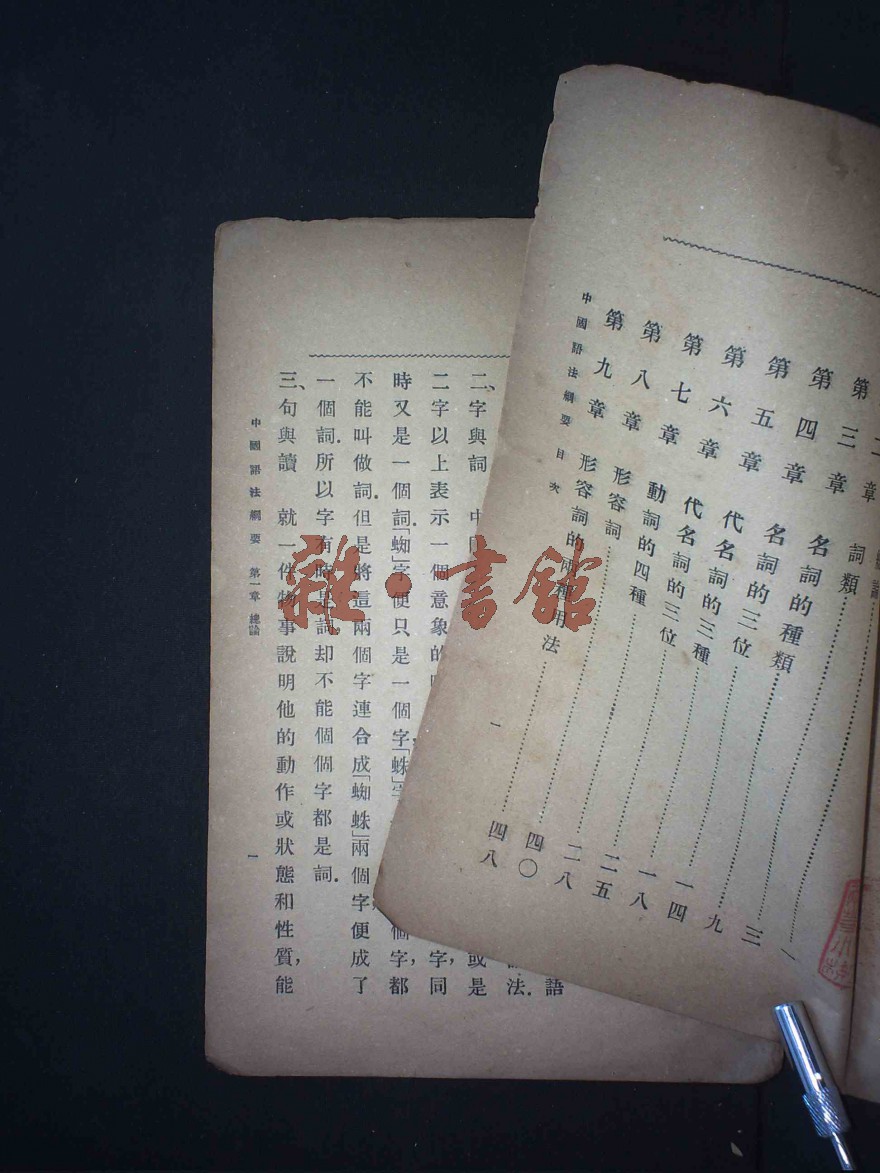 二章 詞類 三
第三章 名詞的種類 九
第四章 名詞的三位 一四
第五章 代名詞的三種 一八
第六章 代名詞的三位 二五
第七章 動詞的四種 二八
第八章 形容詞 四〇
第九章 形容詞的兩種用法 四八
中國語法綱要 目次
一
語
法.
二、字與詞 中 或是
二字以上表示一個意象的 字,同
時又是一個詞.「蜘」字便只是一個字,「蛛」字 個字,都
不能叫做詞.但是將這兩個字連合成「蜘蛛」兩個字便成了
一個詞.所以字有時是詞却不能個個字都是詞.
三、句與讀 就一件物事說明他的動作或狀態和性質,能
中國語法綱要 第一章 總論
一
雜·書館